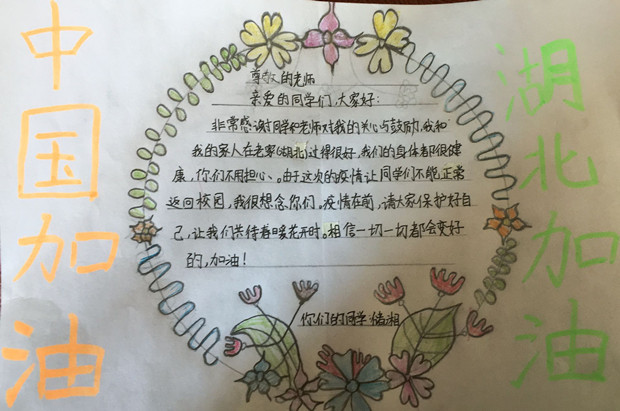 中国加油
尊敬的老师
亲爱的同学们,大家好:
非常感谢同学和老师对我的关心与鼓励,我和
我的家人在老家(湖北)过得很好,我们的身体都很健
康,你们不用担心。由于这次的疫情让同学们不能正常
返回校园,我很想念你们。疫情在前,请大家保护好自
己,让我们共待春暖花开时。相信一切一切都会变好
的,加油!
你们的同学
湖北加油